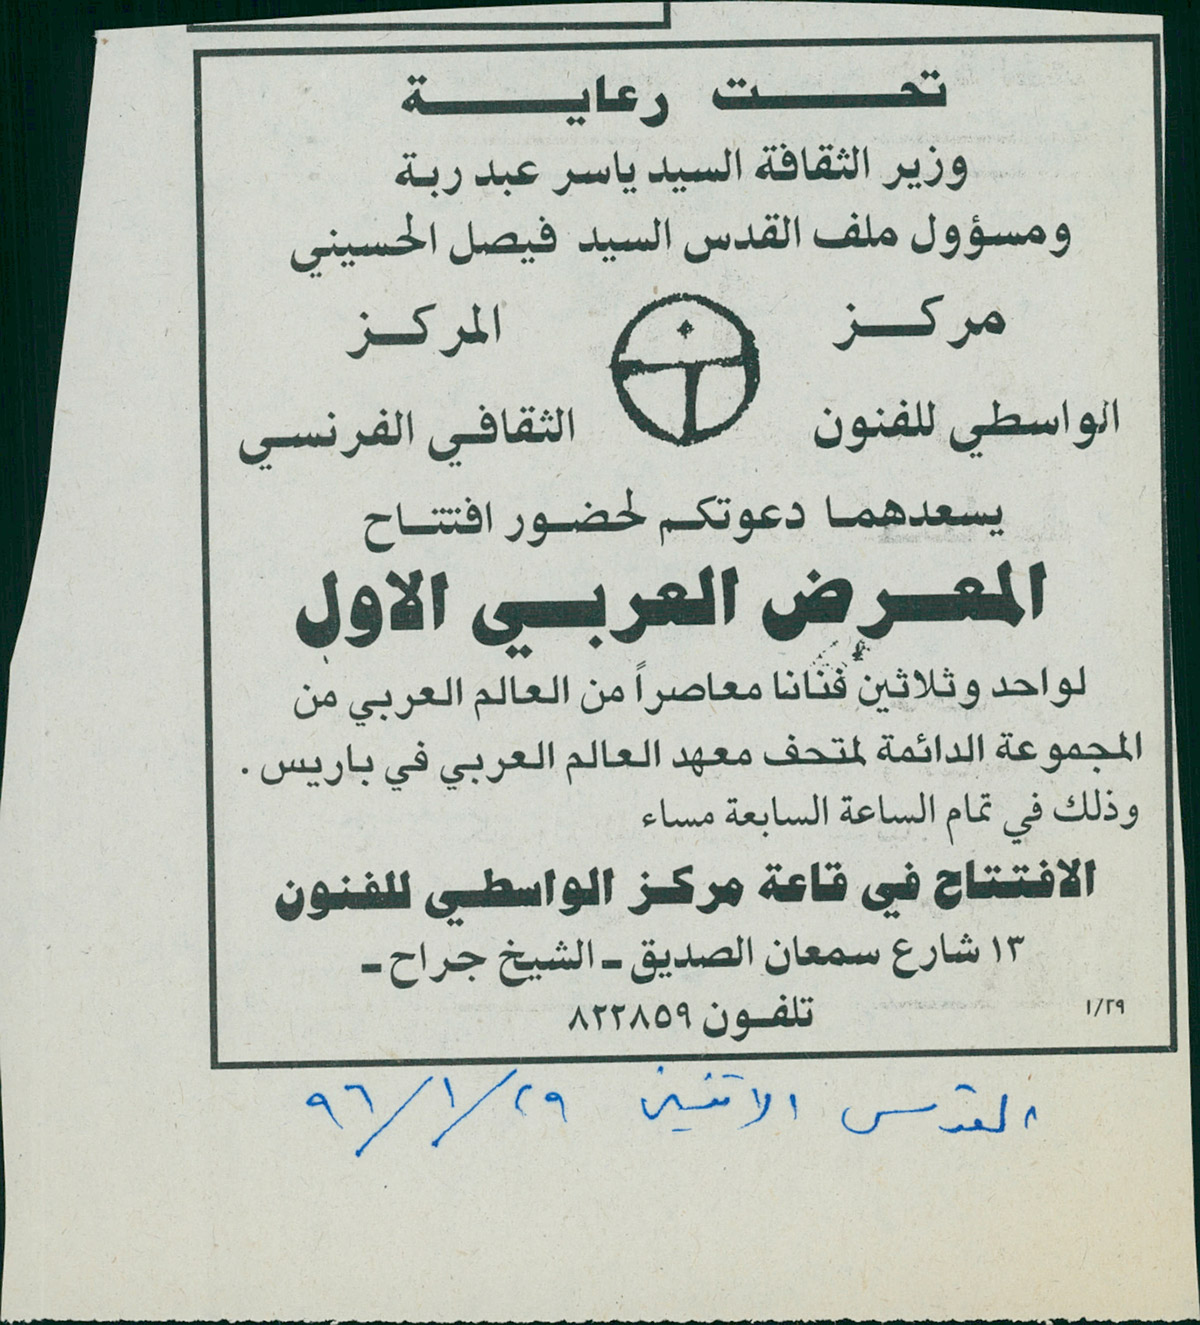 تحت رعاية
وزير الثقافة السيد ياسر عبد ربة
ومسؤول ملف القدس السيد فيصل الحسيني
مركز
الواسطي للفنون
المركز
الثقافي الفرنسي
يسعدهما دعوتكم لحضور افتتاح
المعرض العربي الاول
لواحد وثلاثين فنانا معاصراً من العالم العربي من
المجموعة الدائمة لمتحف معهد العالم العربي في باريس .
وذلك في تمام الساعة السابعة مساء
الافتتاح في قاعة مركز الواسطي للفنون
١٣ شارع سمعان الصديق ـ الشيخ جراح ـ
تلفون ٨٢٢٨٥٩
١/٢٩
القدس الاثنين ٢٩/١/٩٦